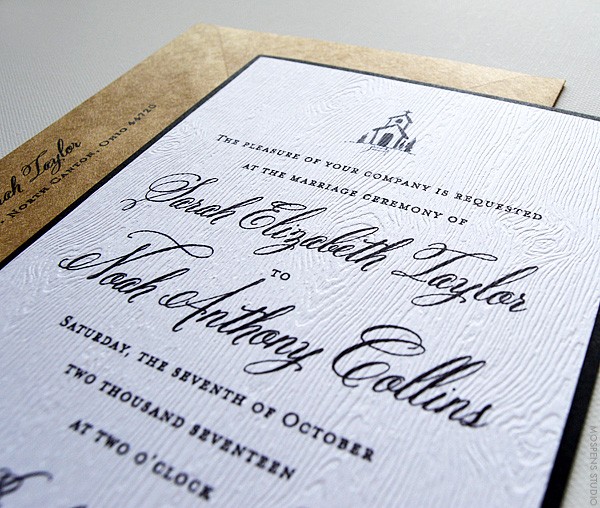 THE PLEASURE OF YOUR COMPANY IS REQUESTED
AT THE MARRIAGE CEREMONY OF
Sarah Elizabeth Taylor
TO
Noah Anthony Collins
SATURDAY, THE SEVENTH OF OCTOBER
TWO THOUSAND SEVENTEEN
AT TWO O'CLOCK
Taylor
NORTH CANTON, OHIO 44720
MOSPENS STUDIO